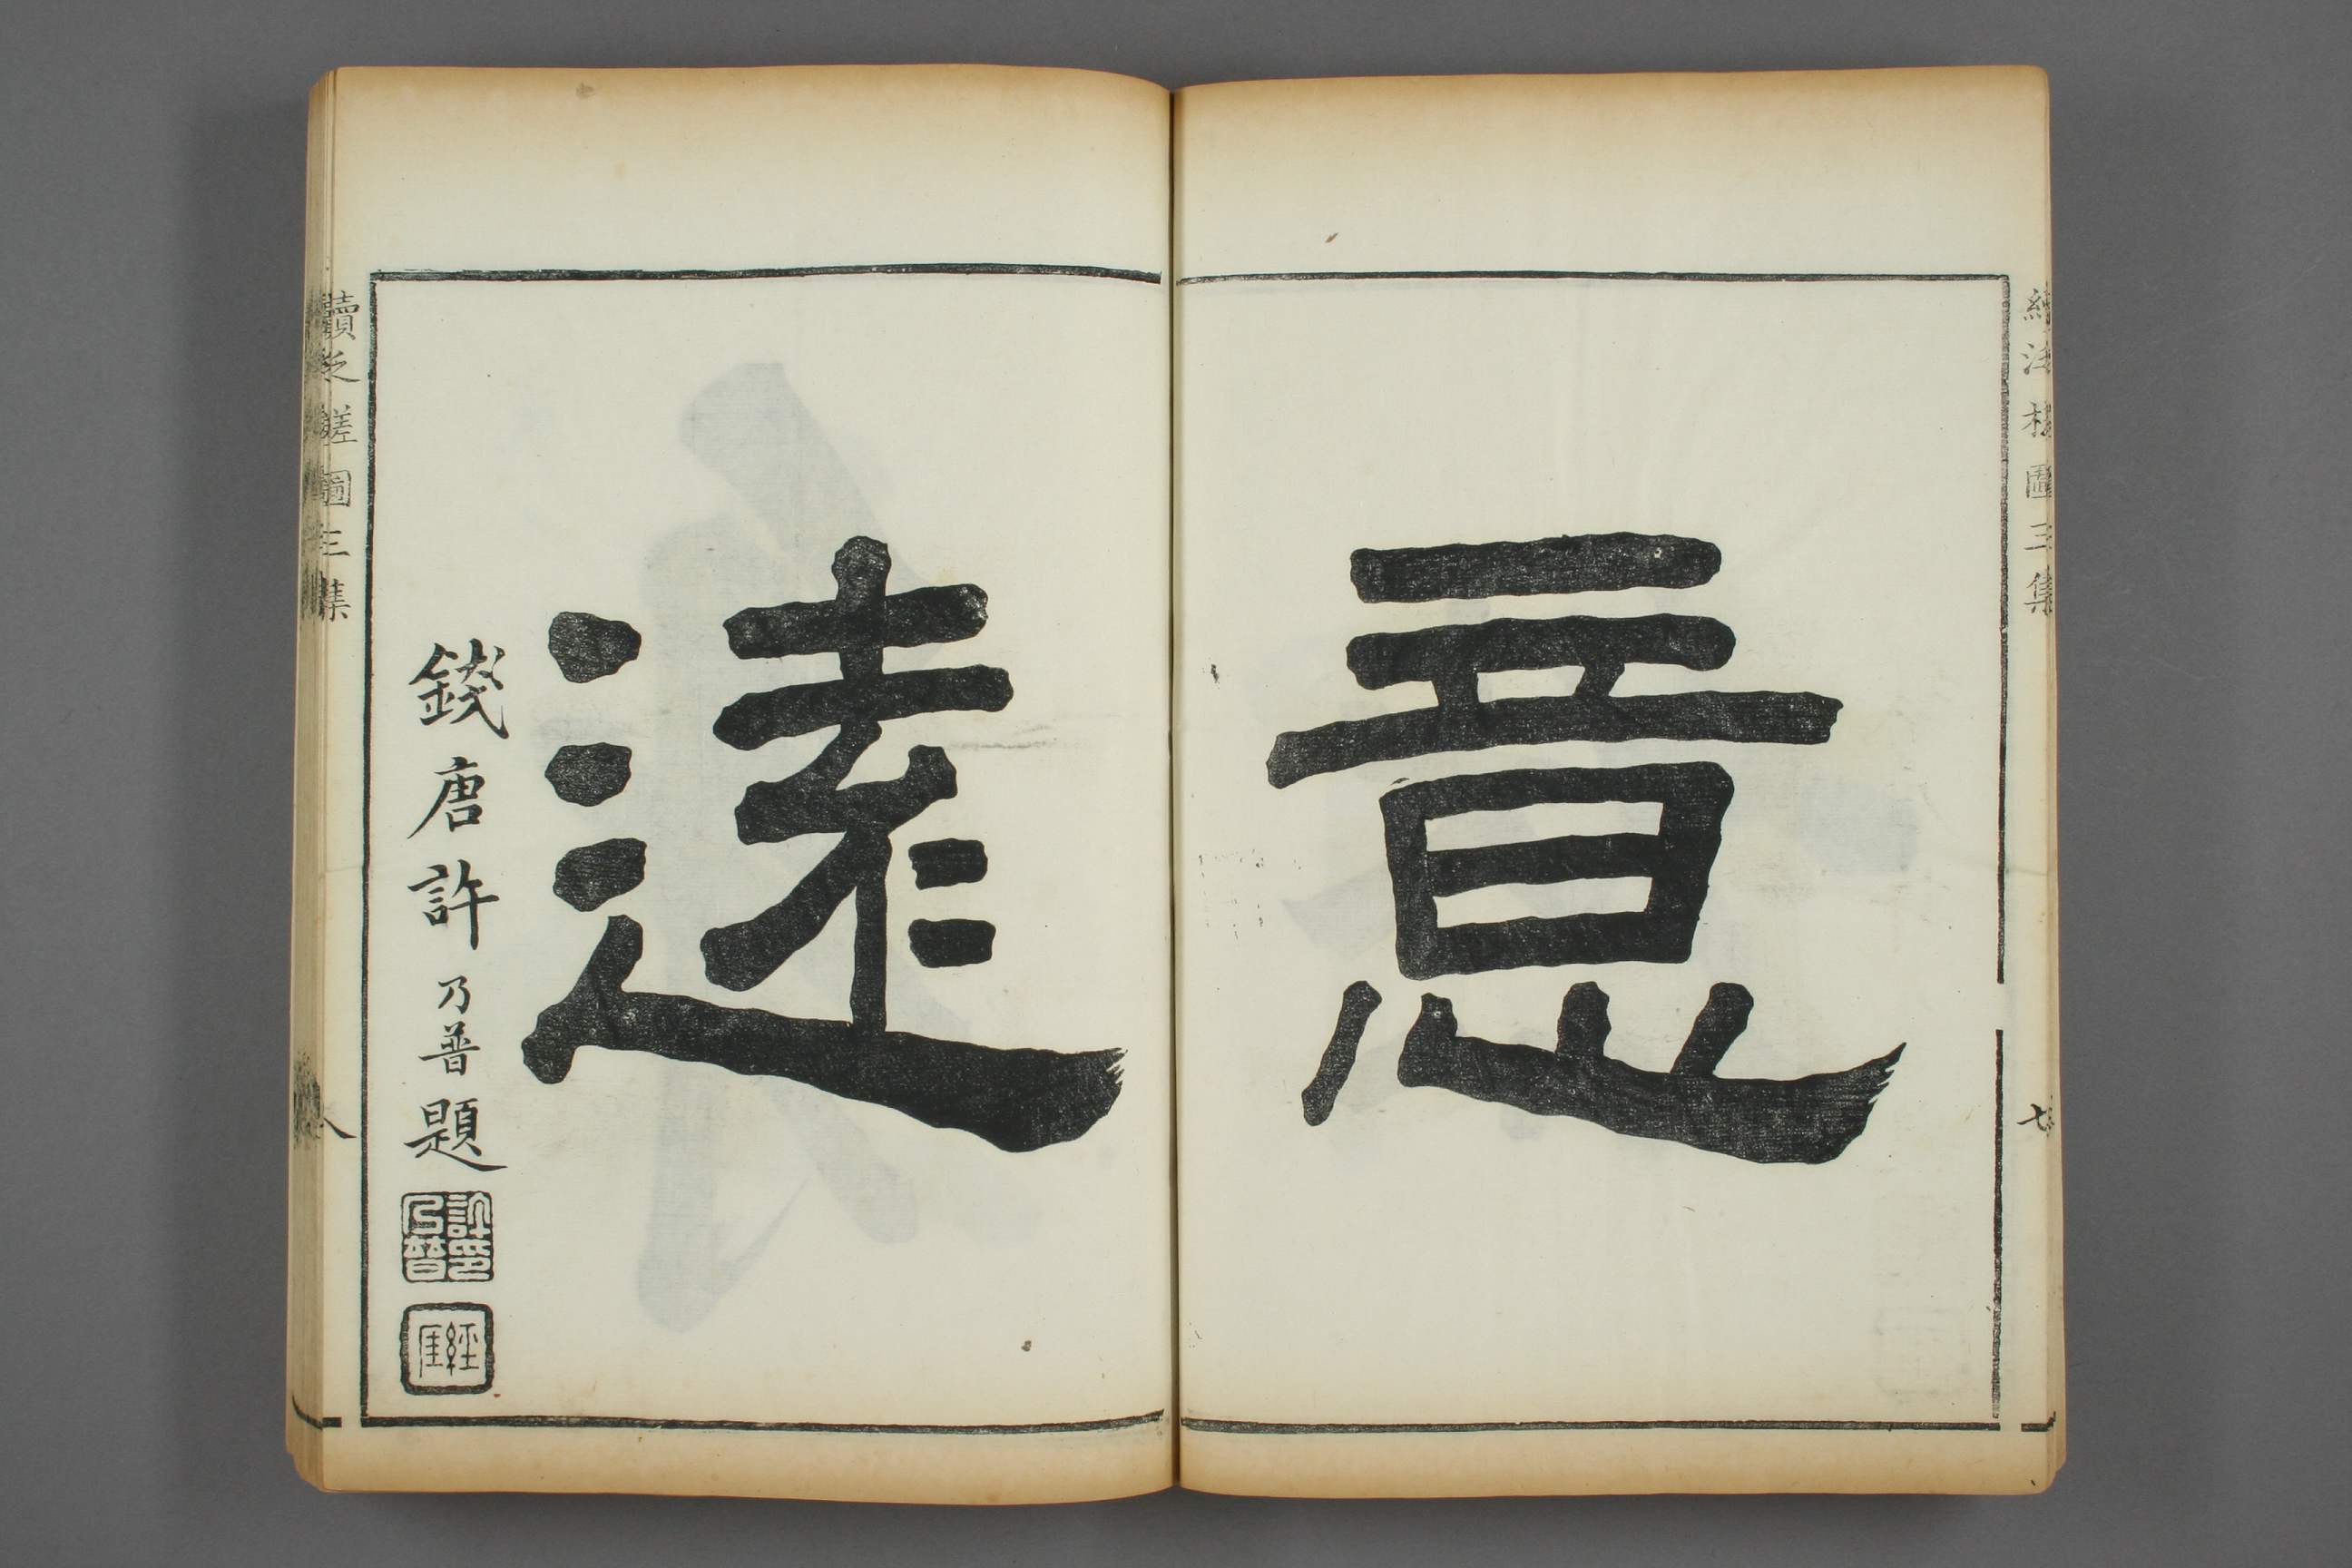 續泛槎圖三集
七
意
遠
錢唐許乃普題
許乃普印
續泛槎圖三集
八